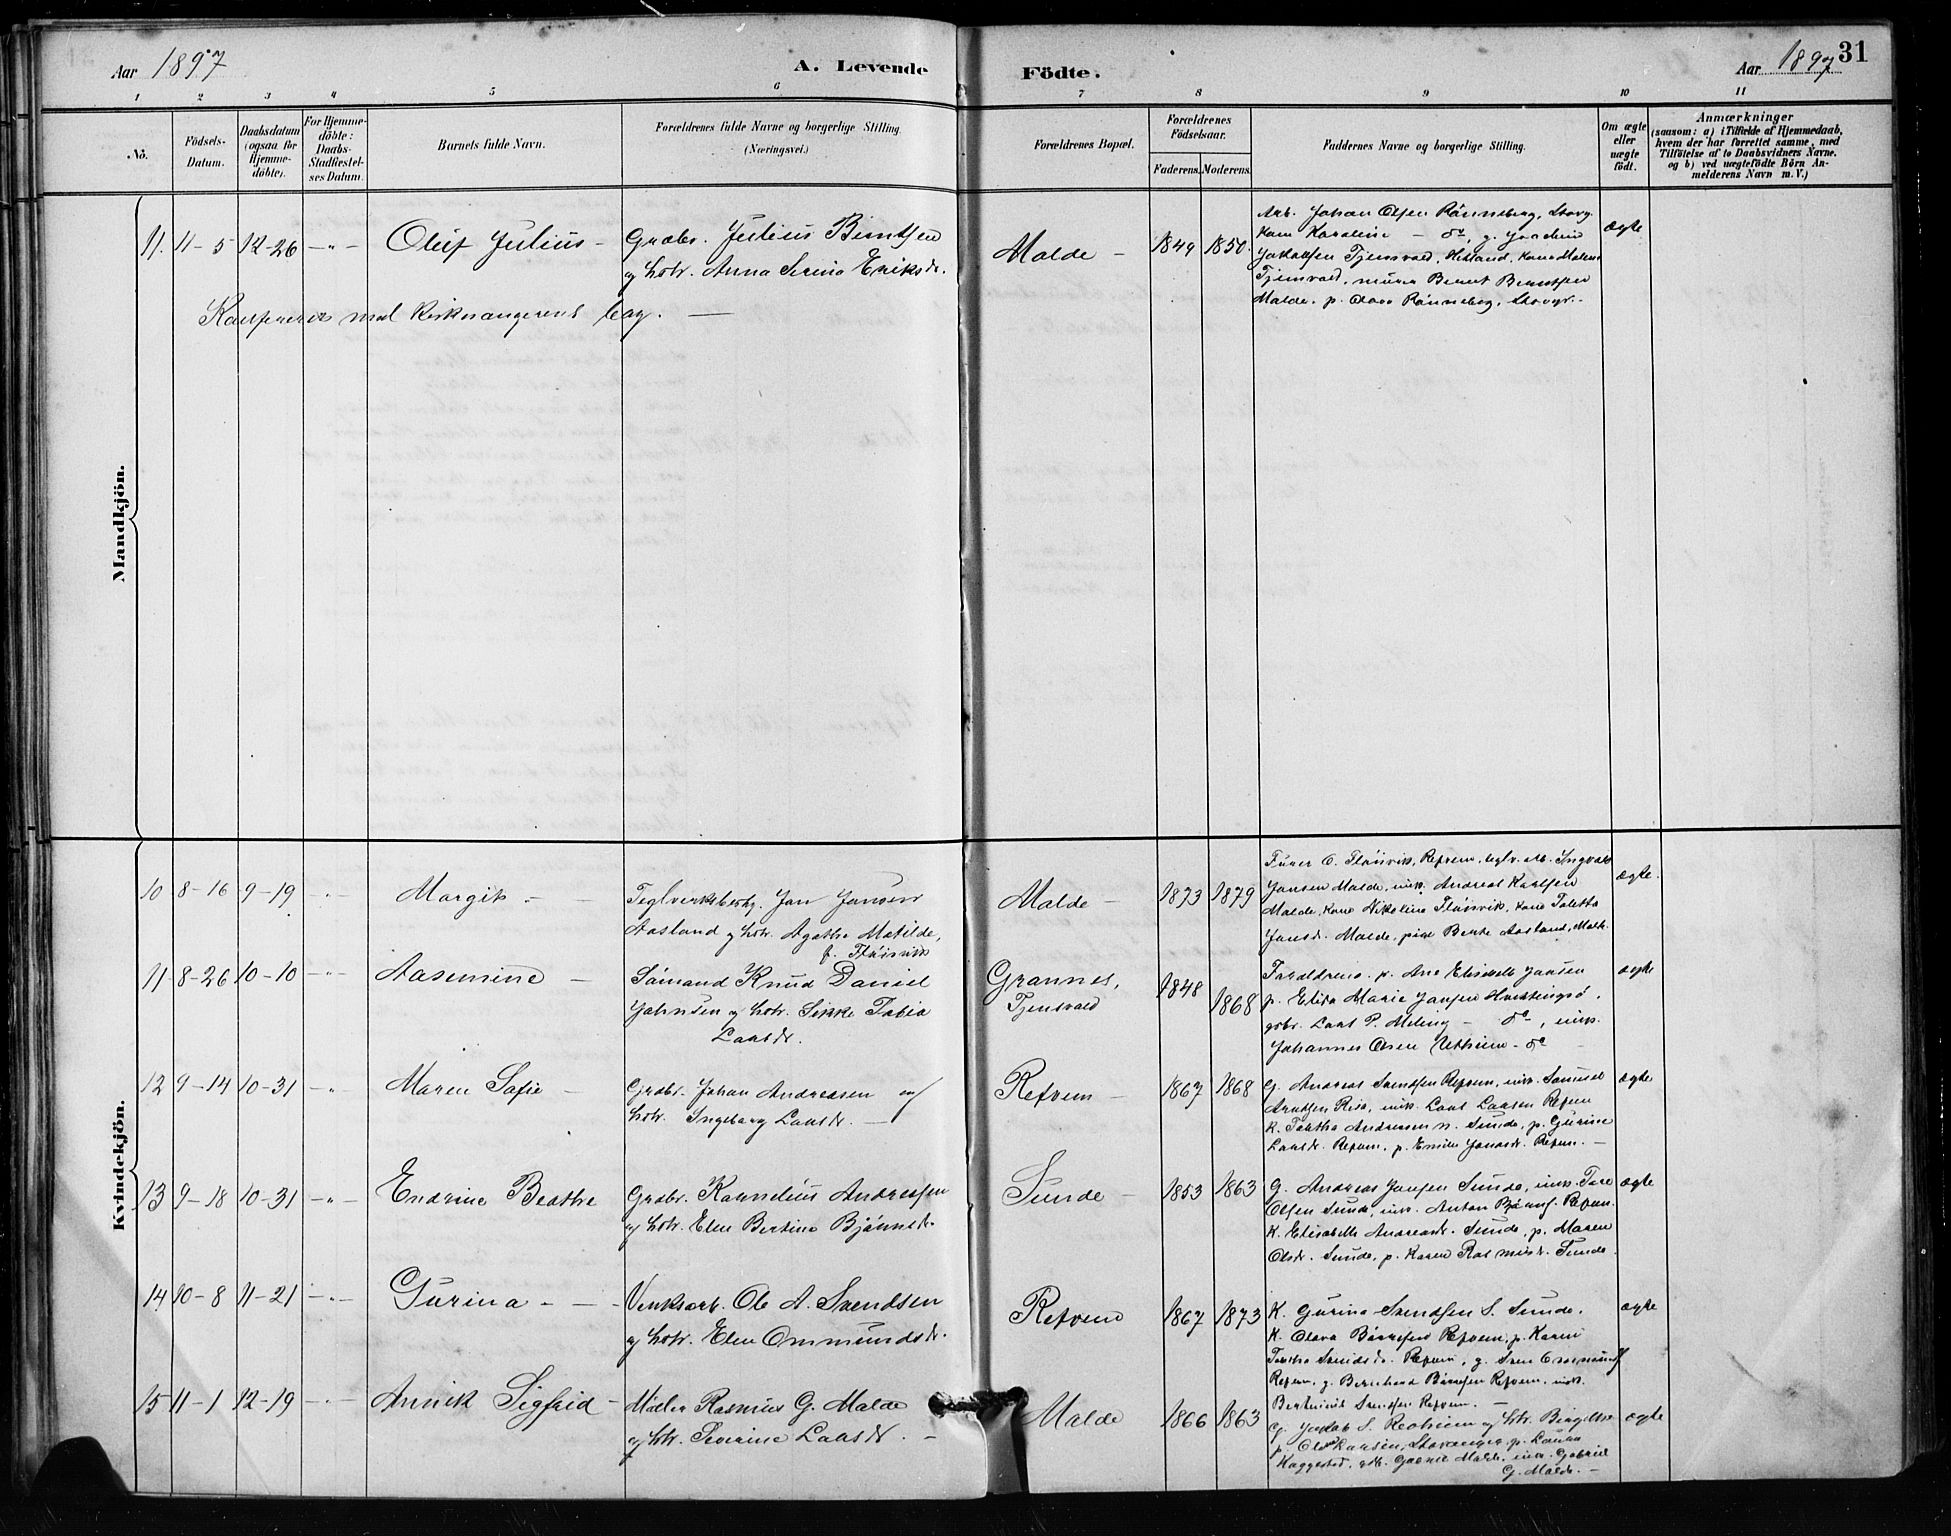 Aar 1897
A. Levende
Födte.
Aar 1897
31
1 2 3 4 5 6 7 8 9 10 11
No.
Födsels-
Datum.
Daabsdatum
(ogsaa for
Hjemme-
döbte).
For Hjemme-
döbte:
Daabs-
Stadfæstel-
ses Datum.
Barnets fulde Navn.
Forældrenes fulde Navne og borgerlige Stilling.
(Næringsvei.)
Forældrenes Bopæl.
Forældrenes
Födselsaar.
Faderens. Moderens.
Faddernes Navne og borgerlige Stilling.
Om ægte
eller
uægte
födt.
Anmærkninger
(saasom: a) i Tilfælde af Hjemmedaab,
hvem der har forrettet samme, med
Tilföielse af to Daabsvidners Navne.
og b) ved uægtefödte Börn An-
melderens Navn m. V.)
Mandkjön.
11. 11-5 12-26 -"- Oluf Julius - Grdbr. Julius Berntsen
og hstr. Anna Serina Eriksdr.
Malde - 1849 1850
Arb. Johan Olsen Rönneberg, Stavgr.
Kone Karoline - do, g. Joachim
Jakobsen Tjensvold, Hetland, Kone Malene
Tjensvold, murer Bernt Berntsen
Malde, p. Olava Rönneberg, Stavgr. -
ægte
med Kirkesangerens bog. -
Kvindekjön.
10 8-16 9-19 -"- Margit - - Teglverksbesty. Jan Jansen
Aasland og hstr. Agathe Matilde,
f. Flöisvik
Malde - 1873 1879
Furer O. Flöisvik, Refvem, teglv. arb. Ingvald
Jansen Malde, unk. Andreas Karlsen
Malde, Kone Nikoline Flöisvik, Kone Taletta
Jansdr. Malde, pige Berte Aasland, Malde.
ægte.
11 8-26 10-10 -"- Aasemine - Sömand Knud Daniel
Johnsen og hstr. Sikke Tobia
Larsdr.
Grannes,
Tjensvold
1848 1868
Forældrene. p. Ane Elisabeth Jansen
p. Elisa Marie Jansen Hvidingsö.
grbr. Lars P. Meling - do, unk.
Johannes Olsen Utheim - do -
ægte
12 9-14 10-31 -"- Maren Sofie - Grdbr. Johan Andreasen og
hstr. Ingeborg Larsdr. -
Refvem - 1867 1868
G. Andreas Svendsen Refvem, unk. Samuel
Arntsen Risa, unk. Lars Larsen Refvem
K. Taletha Andreasen n. Sunde, p. Gurine
Larsdr. Refvem, p. Emilie Jonasdr. Refvem. -
ægte
13 9-18 10-31 -"- Endrine Beathe Grdbr. Kornelius Andreasen
og hstr. Elen Bertine Bjönnsdr.
Sunde - 1853 1863
G. Andreas Jansen Sunde, unk. Tore
Olsen Sunde, unk. Anton Refvem.
K. Elisabeth Andreasdr. Sunde, p. Maren
Olsdr. Sunde, p. Karen Rasmusdr. Sunde.
ægte
14 10-8 11-21 -"- Gurina - - - Verksarb. Ole A. Svendsen
og hstr. Elen Ommundsdr.
Refvem 1867 1873
K. Gurina Svendsen S. Sunde.
K. Olava Börresen Refvem, p. Karen
Taletha Svendsdr. Refvem, g. Sven Ommunds.
Refvem, g. Bernhard Börresen Refvem, unk.
Bertinius Svendsen Refvem. -
ægte
15 11-1 12-19 -"- Annik Sigfrid - Mæler Rasmus G. Malde
og hstr. Severine Larsdr. -
Malde 1866 1863
G. Jakob S. Reoheim og hstr. Birgithe
p. Larsen, Stavanger, p. Laura
Haggested, Malde, unk. Gabriel
G. Malde. -
ægte